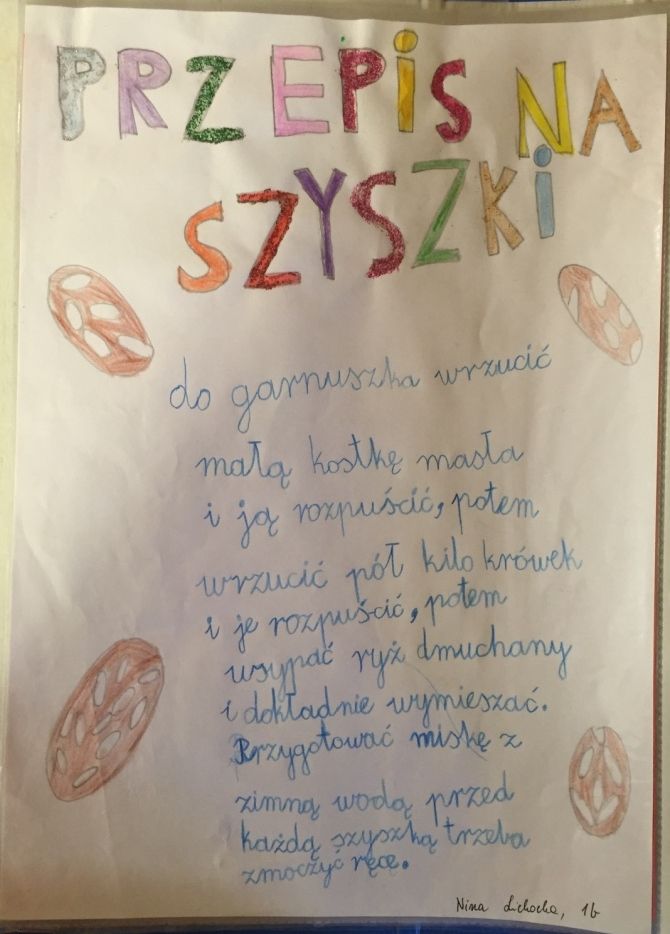 PRZEPIS NA
SZYSZKI
do garnuszka wrzucić
małą kostkę masła
i ją rozpuścić, potem
wrzucić pół kilo krówek
i je rozpuścić, potem
wsypać ryż dmuchany
i dokładnie wymieszać.
Przygotować miskę z
zimną wodą przed
każdą szyszką trzeba
zmoczyć ręce.
Nina Lichocha, 1b